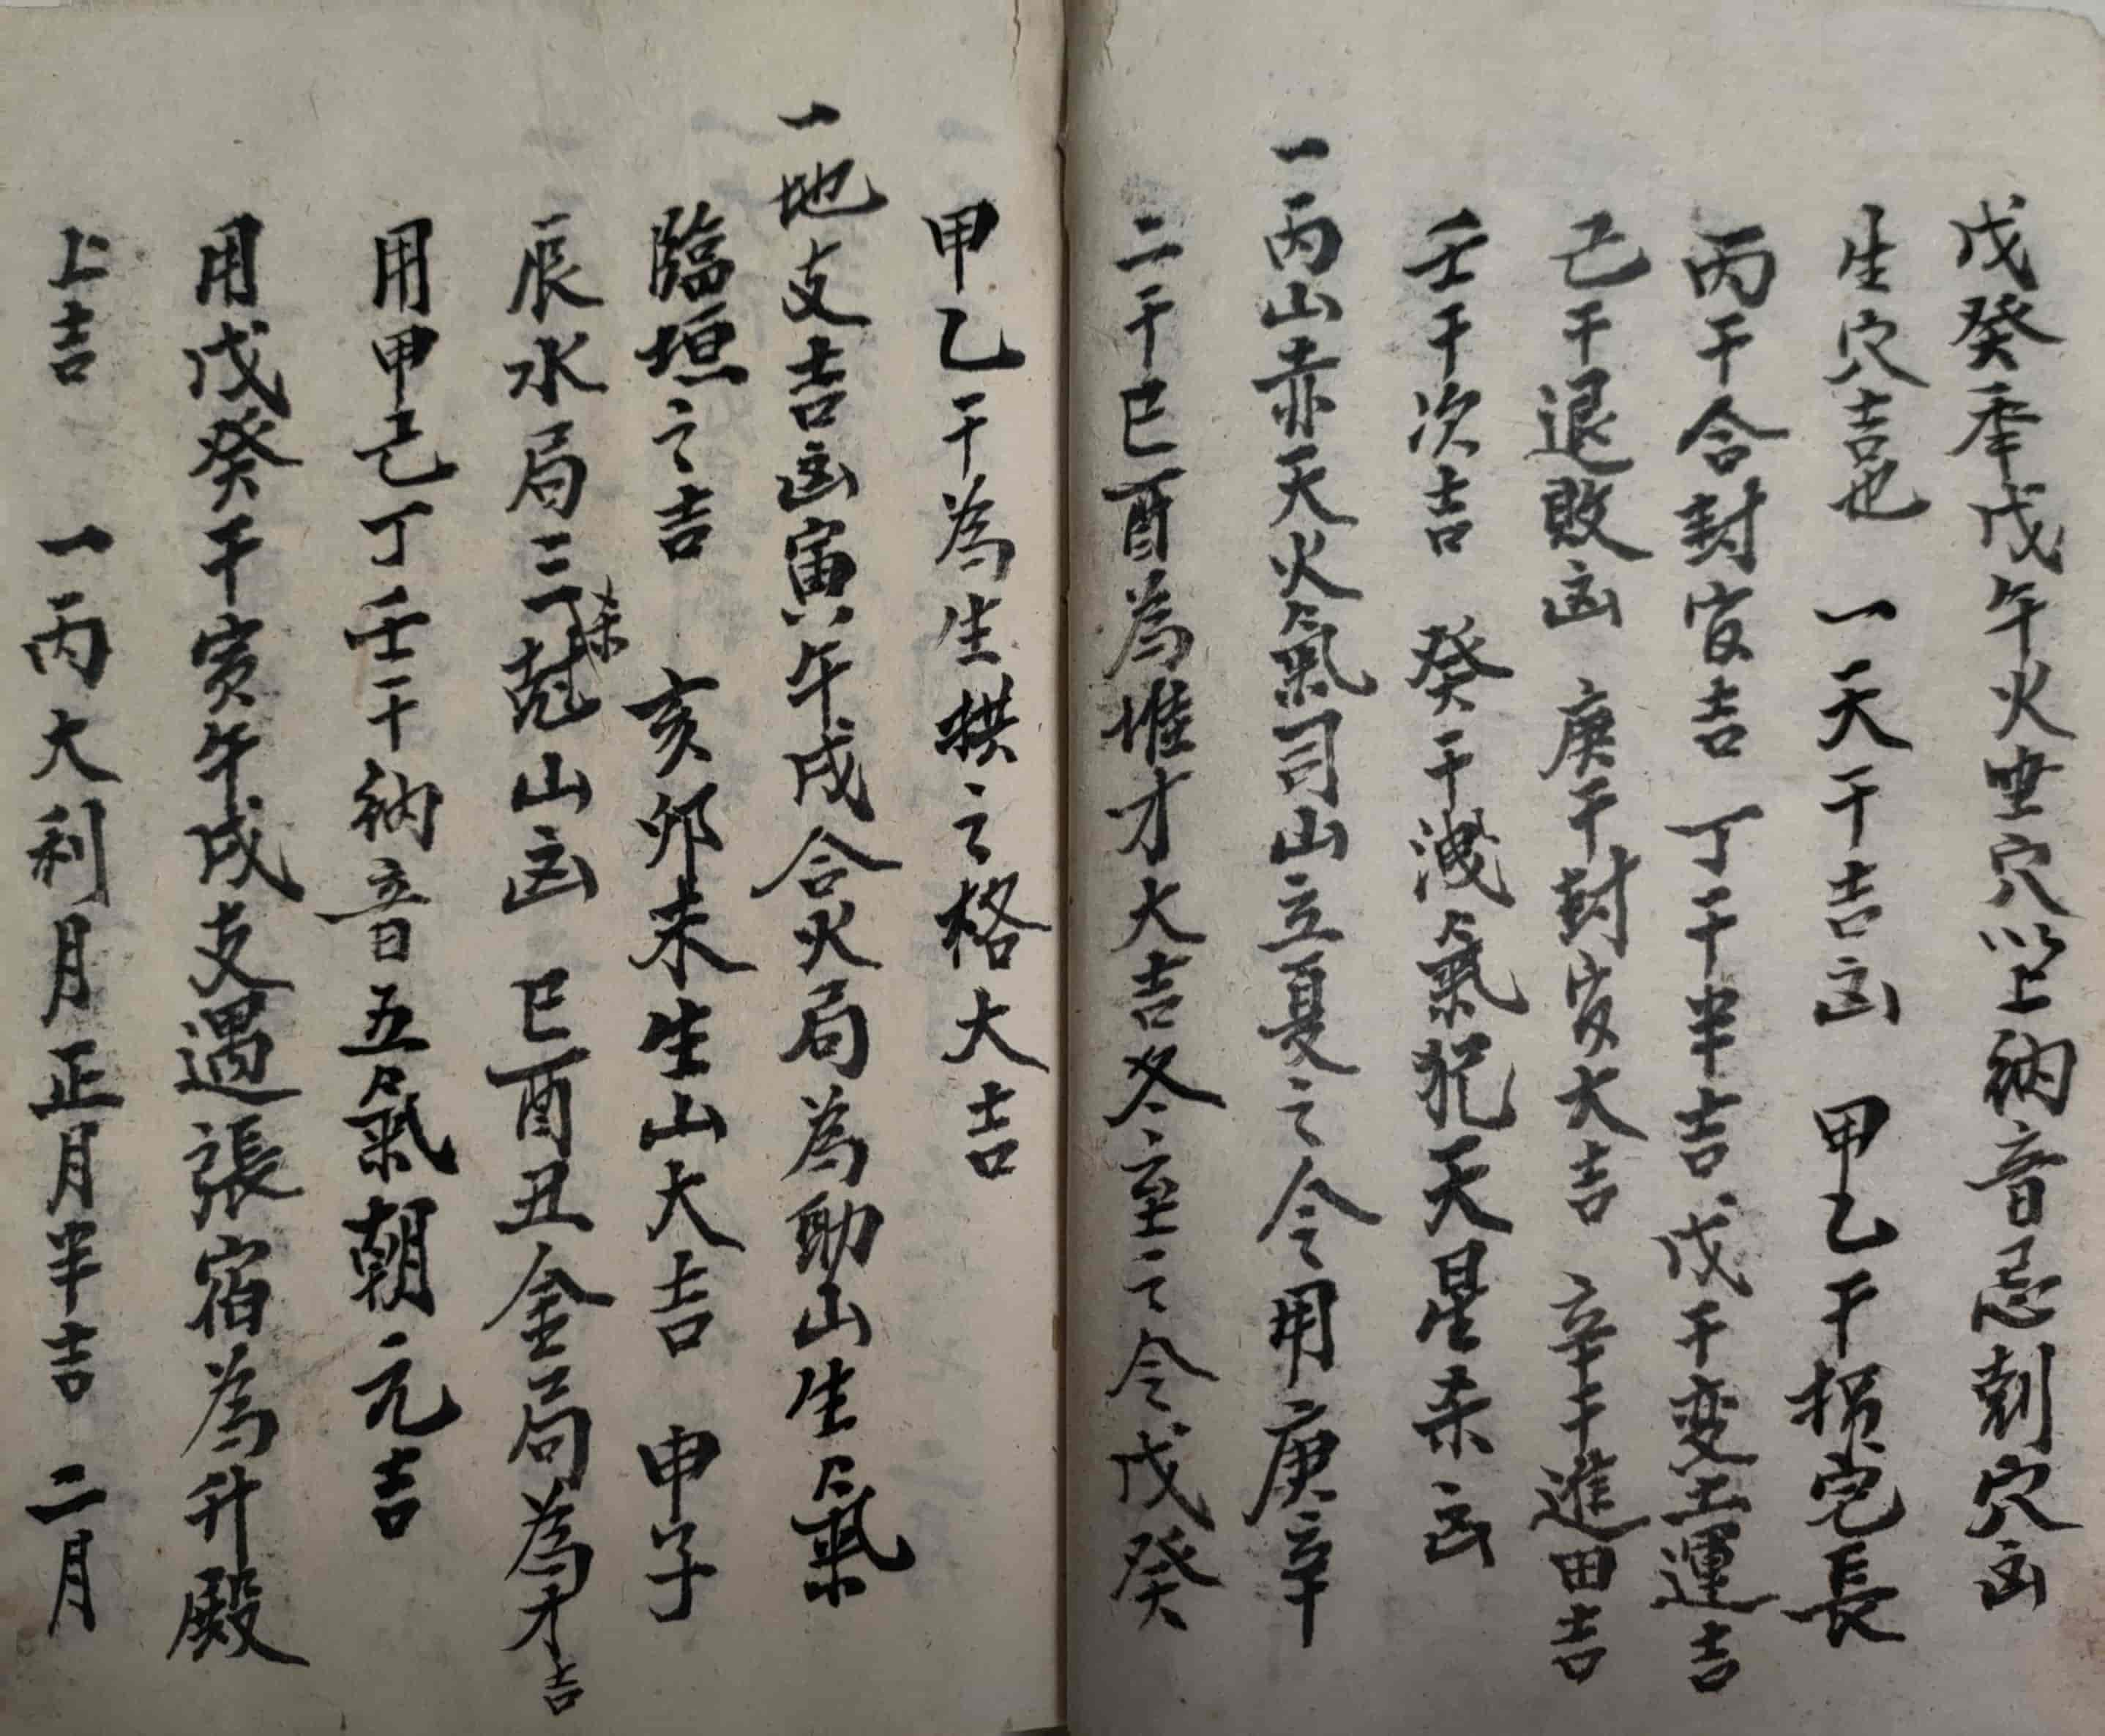 戊癸秊戊午火坐穴以上納音忌剋穴凶
生穴吉也 一天干吉凶 甲乙干損宅長
丙干合封官吉 丁干半吉 戊干变土運吉
己干退敗凶 庚干封官大吉 辛干進田吉
壬干次吉 癸干洩氣犯天星杀凶
一丙山赤天火氣司山立夏之令用庚辛
二干巳酉為堆才大吉冬至之令戊癸
甲乙干為生拱之格大吉
一地支吉凶寅午戌合火局為助山生氣
臨垣之吉 亥卯未生山大吉 申子
辰水局三杀剋山凶 巳酉丑金局為才吉
用甲己丁壬干納音五氣朝元吉
用戊癸干寅午戌支遇張宿為升殿
上吉 一丙大利月正月半吉 二月